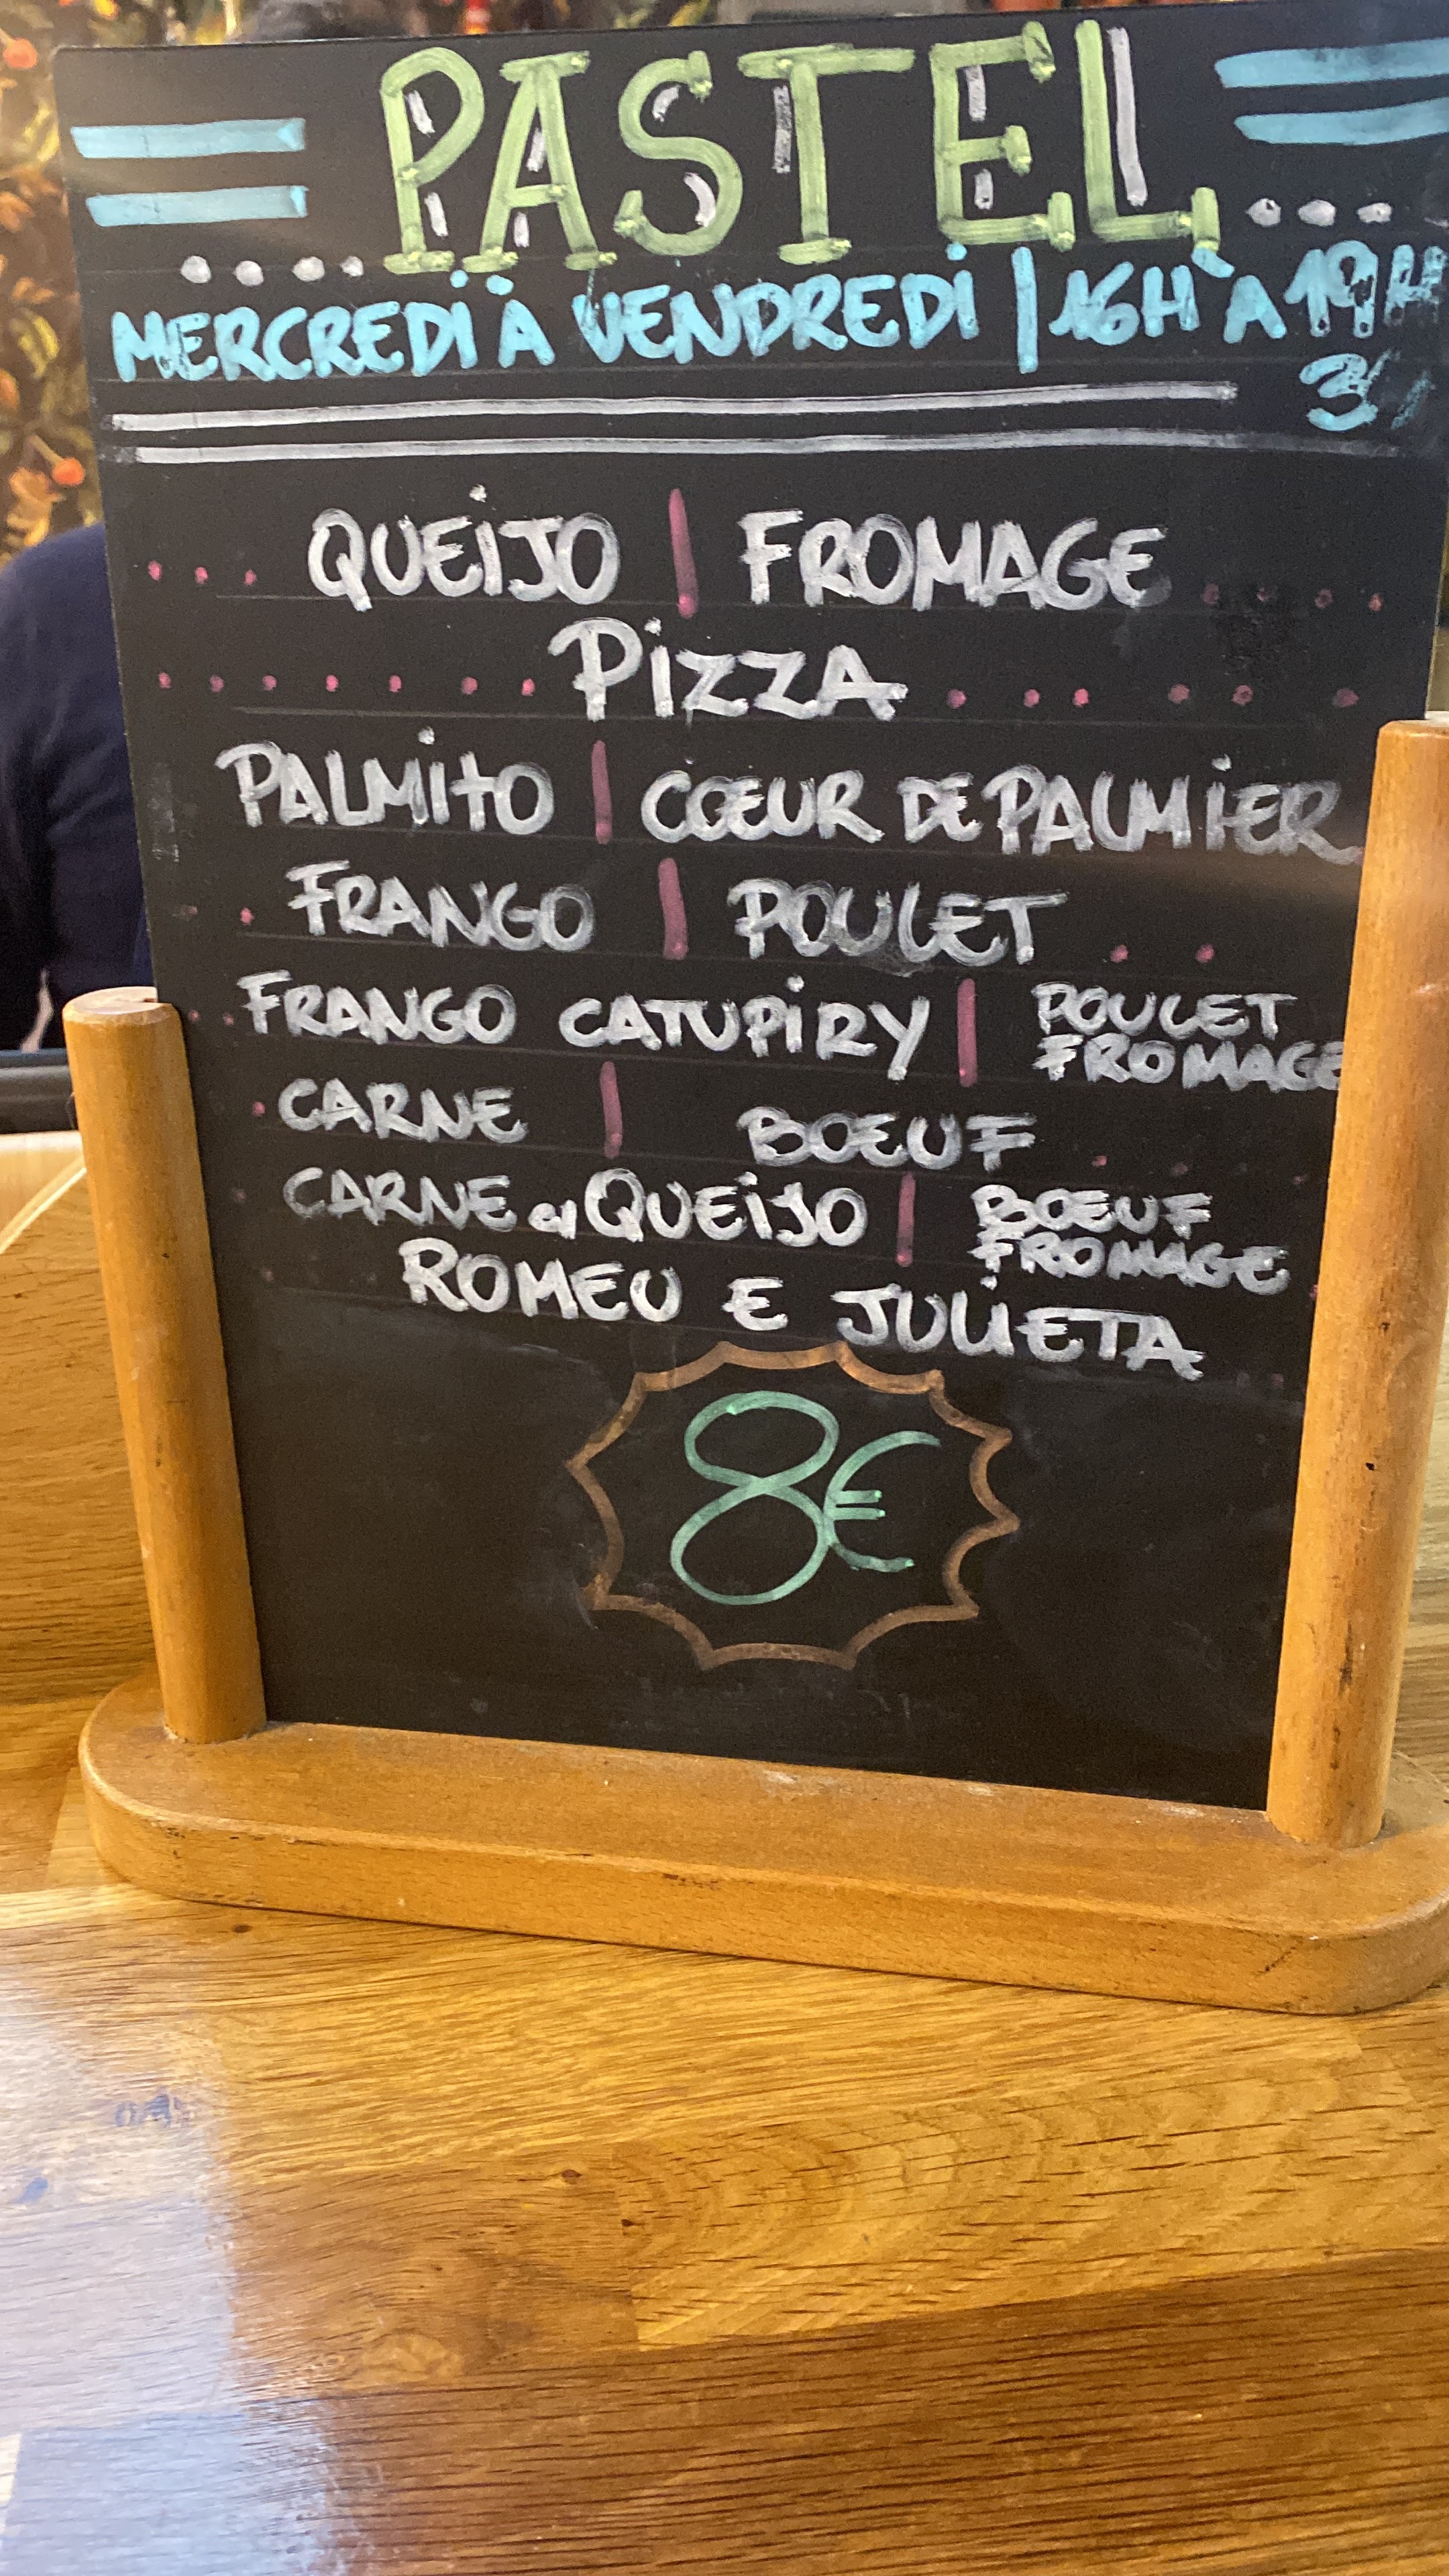 PASTEL
MERCREDI À VENDREDI | 16H À 19H
3
QUEIJO | FROMAGE
PIZZA
PALMITO | CŒUR DE PALMIER
FRANGO | POULET
FRANGO CATUPIRY | POULET FROMAGE
CARNE | BŒUF
CARNE c/ QUEIJO | BŒUF FROMAGE
ROMEU E JULIETA
8€